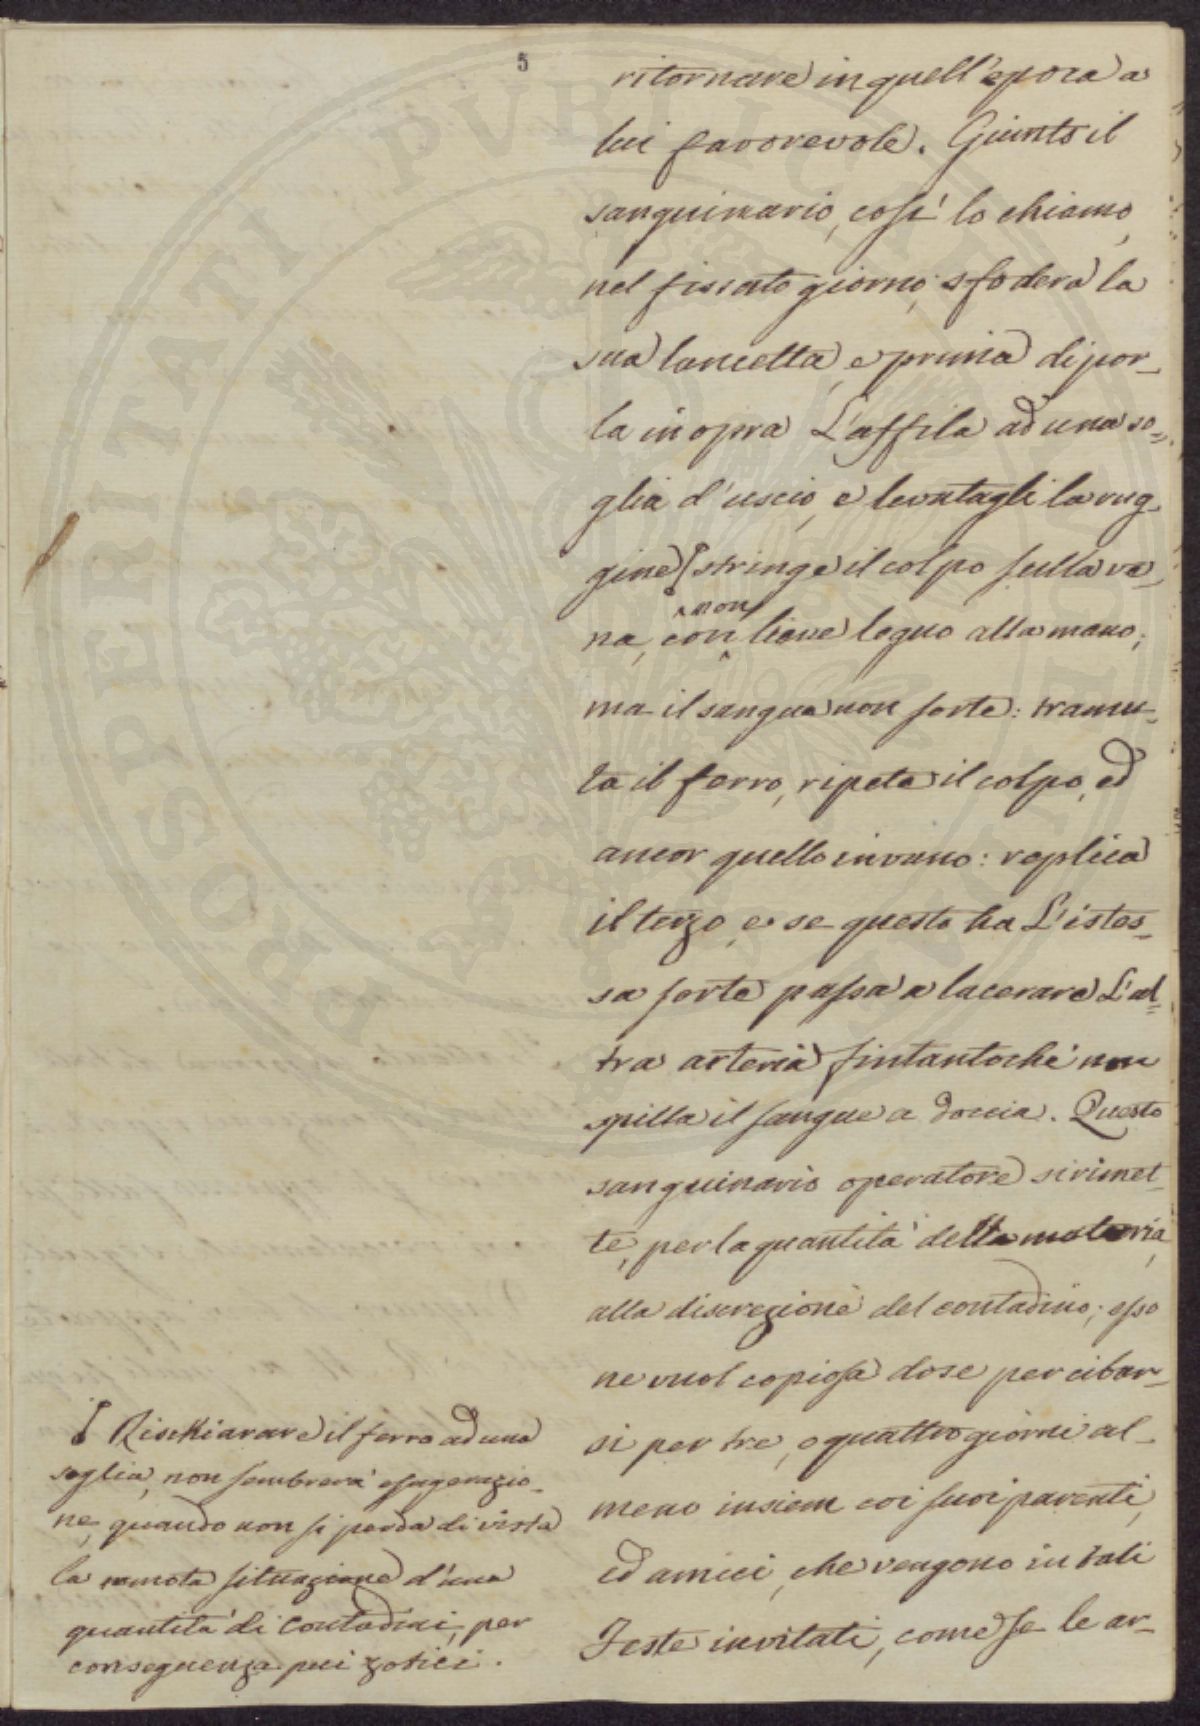 5
ritornare in quell'epoca a
lui favorevole. Giunto il
sanguinario, così lo chiamo,
nel fissato giorno, sfodera la
sua lancetta, e prima di por-
la in opra L'affila ad una so=
glia d'uscio, e levatagli la rug-
gine stringe il colpo sulla ve-
na, con non lieve legno alla mano;
ma il sangue non sorte: tramu-
ta il ferro, ripete il colpo, ed
ancor quello invano: replica
il terzo, e se questo ha L'istes-
sa sorte passa a lacerare L'al-
tra arteria fintantochè non
spilla il sangue a doccia. Questo
sanguinario operatore si rimet-
te, per la quantità della materia,
alla discrezione del contadino; esso
ne vuol copiosa dose per cibar-
si per tre, o quattro giorni al-
meno insiem coi suoi parenti,
ed amici, che vengono in tali
Feste invitati, come se le ar-
Rischiarare il ferro ad una
soglia, non sembrerà esagerazio-
ne, quando non si perda di vista
la remota situazione d'una
quantità di Contadini, per
conseguenza più zotici.
PROSPERITATI PVBLICAE